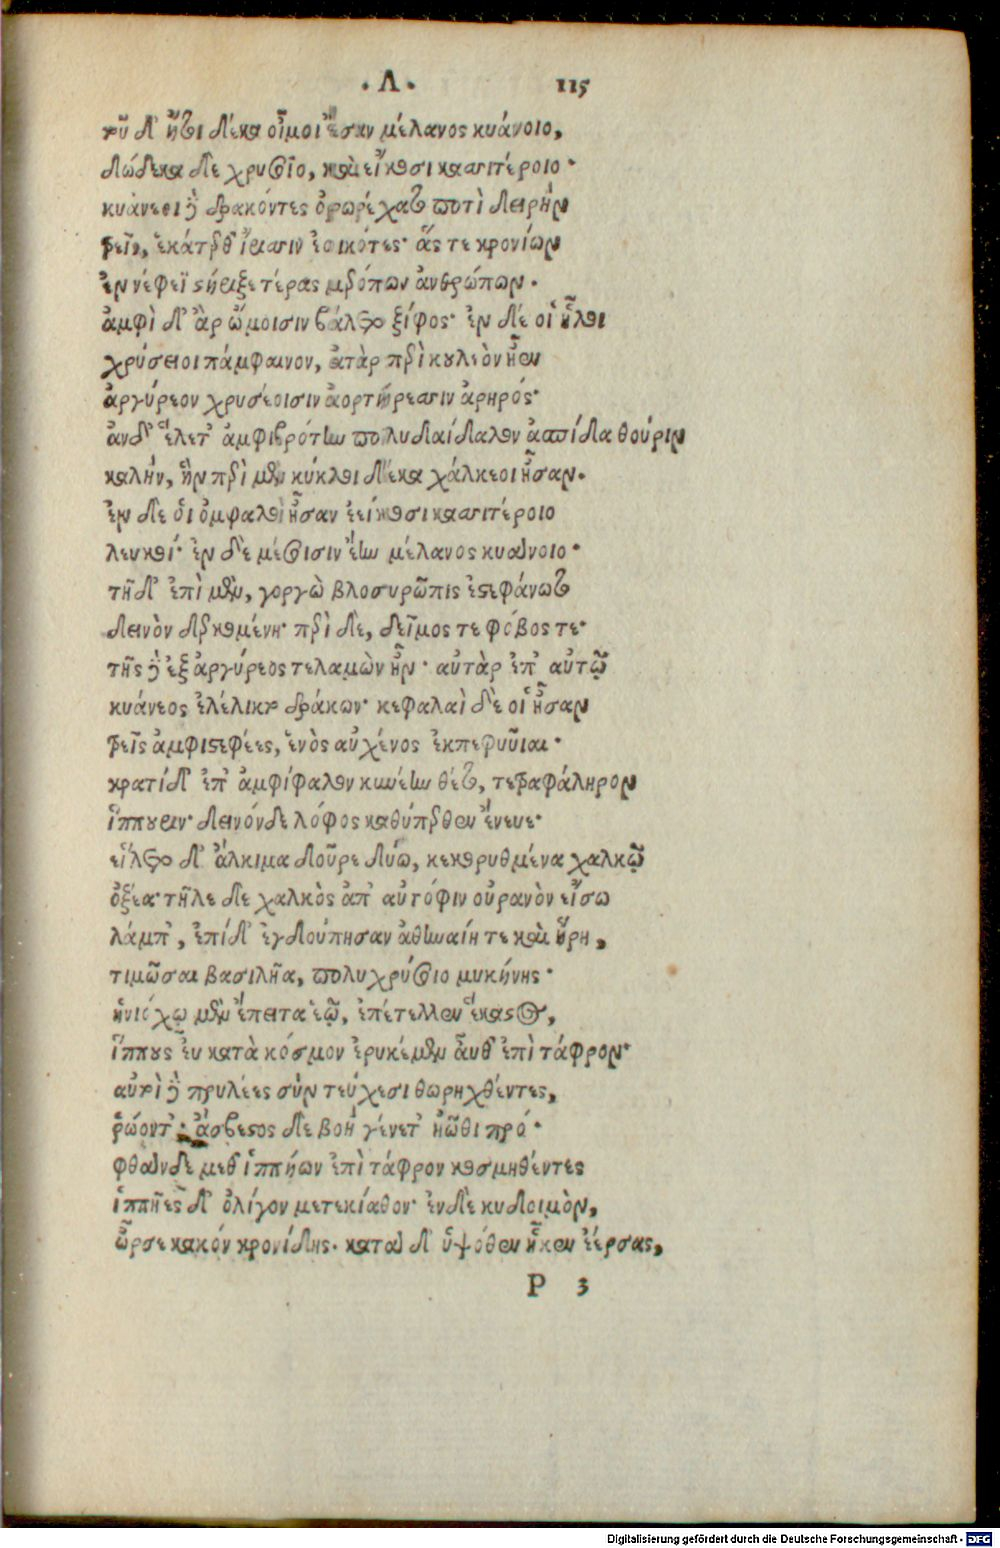 · Λ · 115
τοῦ δ' ἤτοι δέκα οἶμοι ἔσαν μέλανος κυάνοιο,
δώδεκα δὲ χρυσοῖο, καὶ εἴκοσι κασσιτέροιο·
κυάνεοι δὲ δράκοντες ὀρωρέχατο ποτὶ δειρὴν
τρεῖς, ἑκάτερθ' ἴρισσιν ἐοικότες· ἅς τε κρονίων
ἐν νέφεϊ στήριξε τέρας μερόπων ἀνθρώπων.
ἀμφὶ δ' ἂρ ὤμοισιν βάλετο ξίφος· ἐν δέ οἱ ἧλοι
χρύσειοι πάμφαινον, ἀτὰρ περὶ κουλεὸν ἦεν
ἀργύρεον χρυσέοισιν ἀορτήρεσσιν ἀρηρός·
ἂνδ' ἕλετ' ἀμφιβρότην πολυδαίδαλον ἀσπίδα θοῦριν
καλήν, ἣν περὶ μὲν κύκλοι δέκα χάλκεοι ἦσαν.
ἐν δέ οἱ ὀμφαλοὶ ἦσαν ἐείκοσι κασσιτέροιο
λευκοί· ἐν δὲ μέσοισιν ἔην μέλανος κυάνοιο·
τῇ δ' ἐπὶ μὲν, γοργὼ βλοσυρῶπις ἐστεφάνωτο
δεινὸν δερκομένη· περὶ δὲ, δεῖμός τε φόβος τε·
τῆς δὲ ἐξ ἀργύρεος τελαμὼν ἦν· αὐτὰρ ἐπ' αὐτῷ
κυάνεος ἐλέλικτο δράκων· κεφαλαὶ δὲ οἱ ἦσαν
τρεῖς ἀμφιστεφέες, ἑνὸς αὐχένος ἐκπεφυῦιαι·
κρατὶ δ' ἐπ' ἀμφίφαλον κυνέην θέτο, τετραφάληρον
ἵππουριν· δεινόνδε λόφος καθύπερθεν ἔνευε·
εἵλετο δ' ἄλκιμα δοῦρε δύω, κεκορυθμένα χαλκῷ
ὀξέα· τῆλε δὲ χαλκὸς ἀπ' αὐτόφιν οὐρανὸν εἴσω
λάμπ', ἐπὶ δ' ἐγδούπησαν ἀθηναίη τε καὶ ἥρη,
τιμῶσαι βασιλῆα, πολυχρύσοιο μυκήνης·
ἡνιόχῳ μὲν ἔπειτα ἑῷ, ἐπέτελλεν ἕκαστος,
ἵππους εὖ κατὰ κόσμον ἐρυκέμεν αὖθ' ἐπὶ τάφρον·
αὐτοὶ δὲ πρυλέες σὺν τεύχεσι θωρηχθέντες,
ῥώοντ'· ἄσβεστος δὲ βοὴ γένετ' ἠῶθι πρό·
φθὰνδε μεθ' ἱππήων ἐπὶ τάφρον κοσμηθέντες
ἱππῆες δ' ὀλίγον μετεκίαθον· ἐνδὲ κυδοιμὸν,
ὦρσε κακόν κρονίδης· κατὰ δ' ὑψόθεν ἧκεν ἐέρσας,
P 3
Digitalisierung gefördert durch die Deutsche Forschungsgemeinschaft - DFG